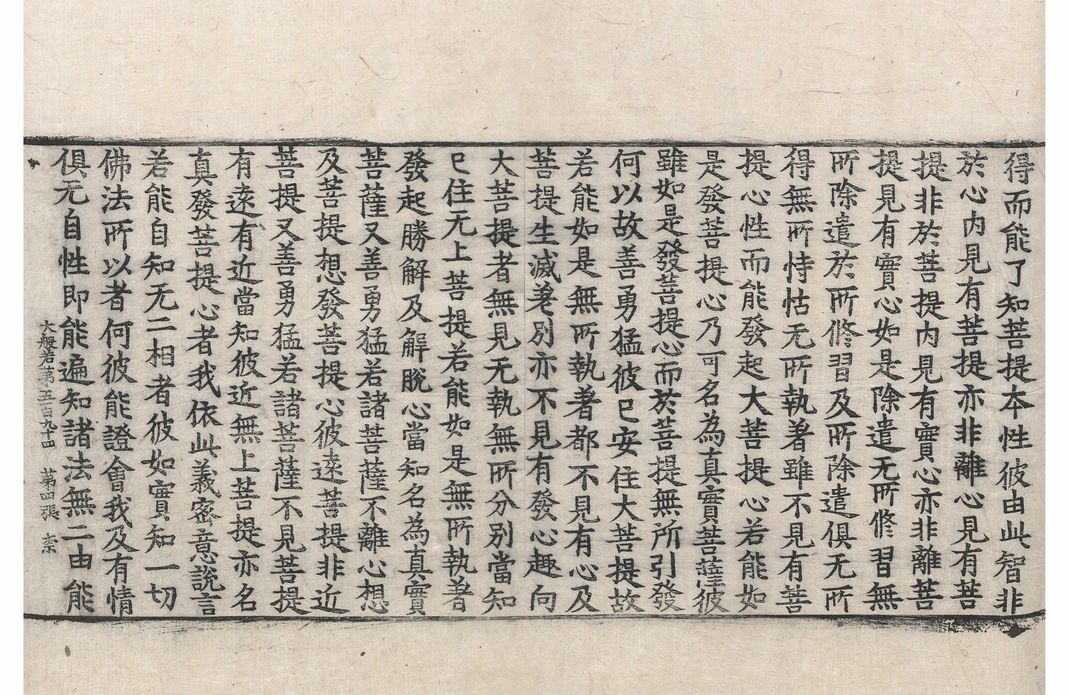 得而能了知菩提本性彼由此智非
於心內見有菩提亦非離心見有菩
提非於菩提內見有實心亦非離菩
提見有實心如是除遣无所修習無
所除遣於所修習及所除遣俱无所
得無所恃怙无所執著雖不見有菩
提心性而能發起大菩提心若能如
是發菩提心乃可名為真實菩薩彼
雖如是發菩提心而於菩提無所引發
何以故善勇猛彼已安住大菩提故
若能如是無所執著都不見有心及
菩提生滅差別亦不見有發心趣向
大菩提者無見无執無所分別當知
已住无上菩提若能如是無所執著
發起勝解及解脫心當知名為真實
菩薩又善勇猛若諸菩薩不離心想
及菩提想發菩提心彼遠菩提非近
菩提又善勇猛若諸菩薩不見菩提
有遠有近當知彼近無上菩提亦名
真發菩提心者我依此義密意說言
若能自知无二相者彼如實知一切
佛法所以者何彼能證會我及有情
俱无自性即能遍知諸法無二由能
大般若第五百九十四 第四張 柰